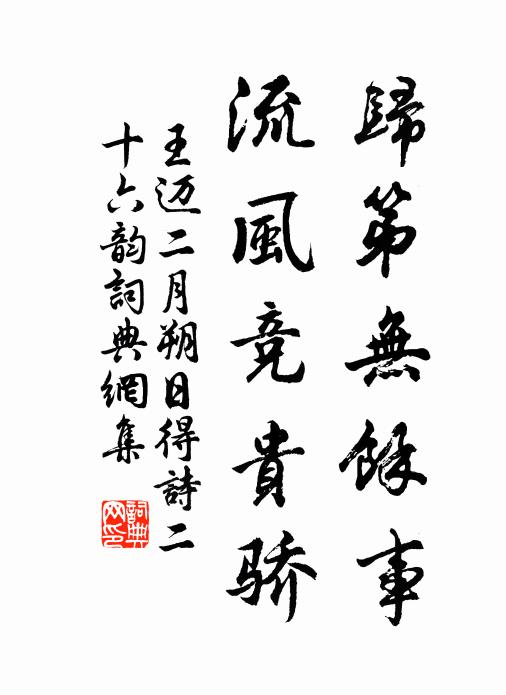 歸第無餘事
流風竞貴骄
王迈二月朔日得詩二
十六韵詞典網集
詞典网印